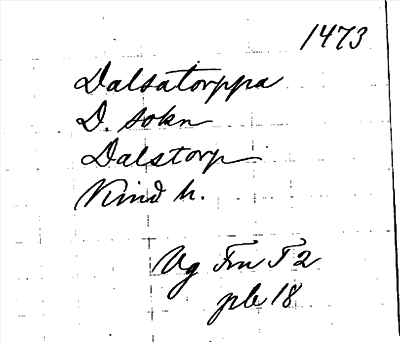 1473
Dalsatorppa
D. sokn
Dalstorp
Kind h.
Vg Fru T 2
pb 18